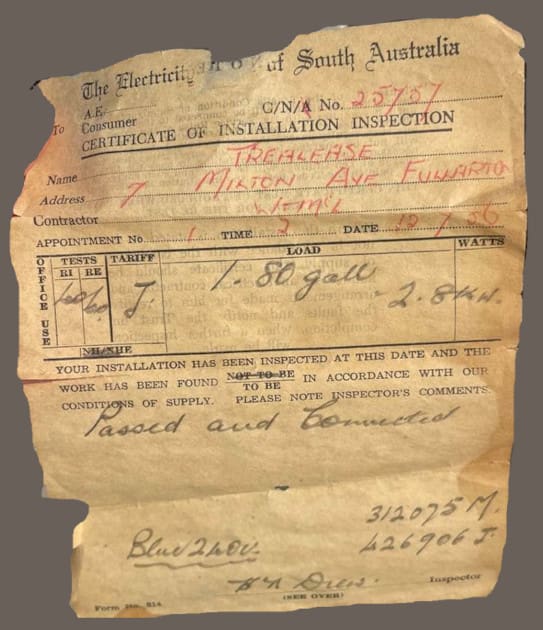 The Electricity of South Australia
A.E.
To Consumer C/N/A No. 25757
CERTIFICATE OF INSTALLATION INSPECTION
Name TREALEASE
Address 7 MILTON AVE FULLARTON
Contractor
APPOINTMENT No. 1 TIME 2 DATE 12 / 56
OFFICE USE TESTS TARIFF LOAD WATTS
RI RE
60 60 J. 1. 80 gall 2.8Kw.
NH/SHE
YOUR INSTALLATION HAS BEEN INSPECTED AT THIS DATE AND THE
WORK HAS BEEN FOUND NOT TO BE TO BE IN ACCORDANCE WITH OUR
CONDITIONS OF SUPPLY. PLEASE NOTE INSPECTOR'S COMMENTS.
Passed and Connected
312075 M.
Blue 240v. 426906 J.
Inspector
(SEE OVER)
Form No. 81A